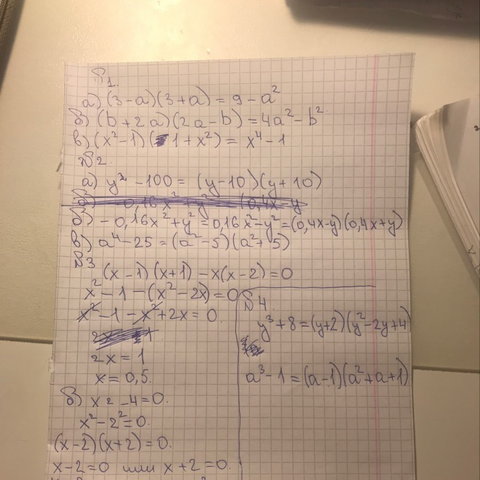 №1
а) (3-a)(3+a) = 9 - a²
б) (b+2a)(2a-b) = 4a² - b²
в) (x²-1)(1+x²) = x⁴-1
№2
а) y² - 100 = (y-10)(y+10)
б) -0,16x² + y² = 0,16x² - y² = (0,4x-y)(0,4x+y)
в) a⁴-25 = (a²-5)(a²+5)
№3
(x-1)(x+1) - x(x-2) = 0
x² - 1 - (x² - 2x) = 0
x² - 1 - x² + 2x = 0
2x = 1
x = 0,5.
б) x² - 4 = 0.
x² - 2² = 0.
(x-2)(x+2) = 0.
x-2=0 или x+2=0.
№4
y³+8 = (y+2)(y²-2y+4)
a³-1 = (a-1)(a²+a+1)